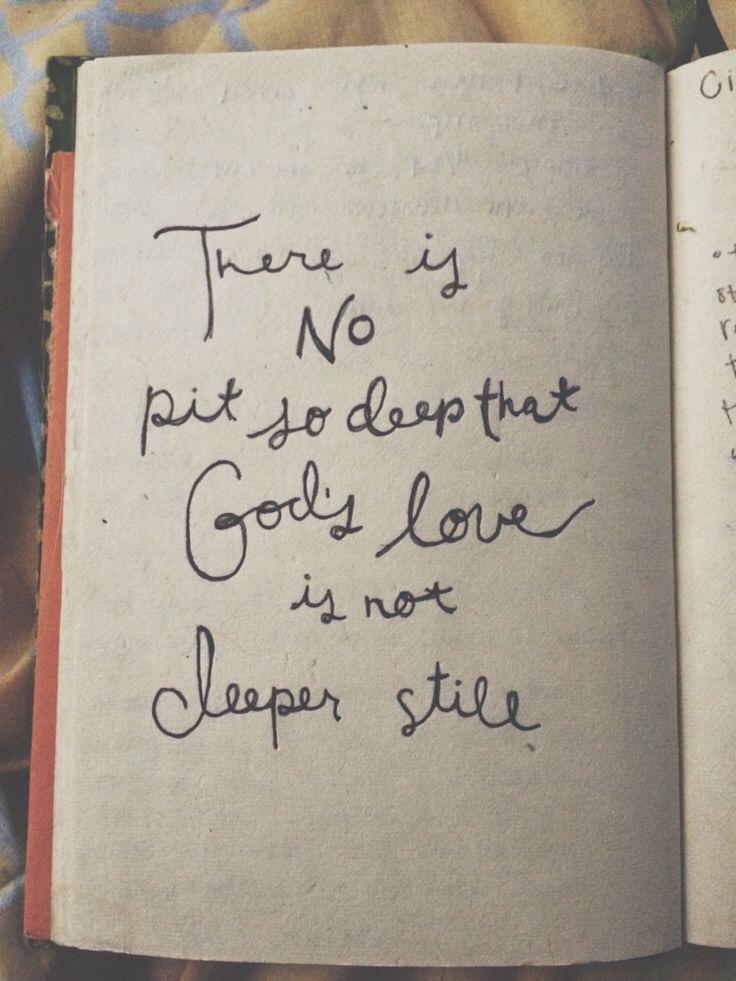 There is
No
pit so deep that
God's love
is not
deeper still
Ci